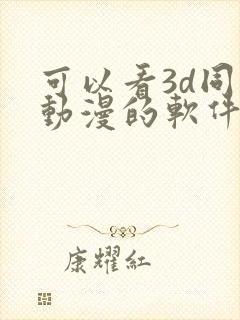 可以看3d同
動漫的軟件
康耀紅